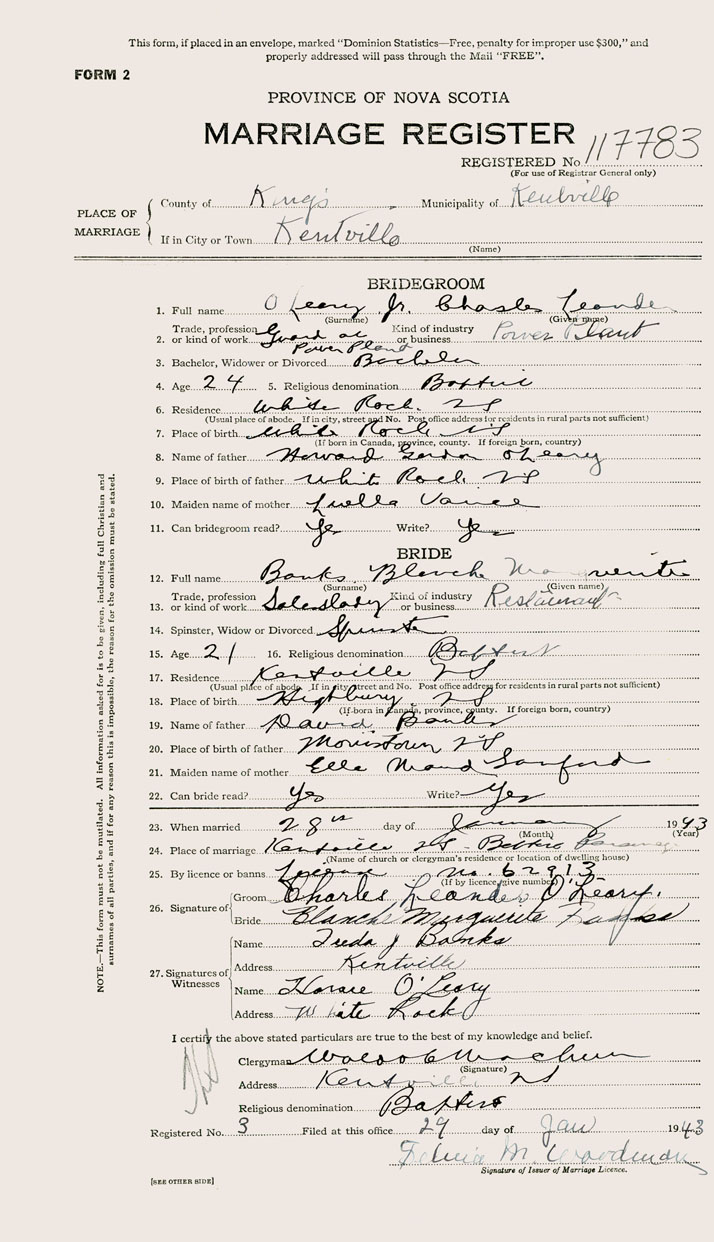 This form, if placed in an envelope, marked "Dominion Statistics—Free, penalty for improper use $300," and
properly addressed will pass through the Mail "FREE".
FORM 2
PROVINCE OF NOVA SCOTIA
MARRIAGE REGISTER
REGISTERED No 117783
(For use of Registrar General only)
PLACE OF MARRIAGE
County of King's Municipality of Kentville
If in City or Town Kentville
(Name)
BRIDEGROOM
1. Full name O'Leary Jr. Charles Leander
(Surname) (Given name)
2. Trade, profession or kind of work Guard at Power Plant Kind of industry or business Power Plant
3. Bachelor, Widower or Divorced Bachelor
4. Age 24 5. Religious denomination Baptist
6. Residence White Rock NS
(Usual place of abode. If in city, street and No. Post office address for residents in rural parts not sufficient)
7. Place of birth White Rock NS
(If born in Canada, province, county. If foreign born, country)
8. Name of father Howard Gordon O'Leary
9. Place of birth of father White Rock NS
10. Maiden name of mother Luella Vance
11. Can bridegroom read? Yes Write? Yes
BRIDE
12. Full name Banks Blanch Marguerite
(Surname) (Given name)
13. Trade, profession or kind of work Saleslady Kind of industry or business Restaurant
14. Spinster, Widow or Divorced Spinster
15. Age 21 16. Religious denomination Baptist
17. Residence Kentville NS
(Usual place of abode. If in city street and No. Post office address for residents in rural parts not sufficient)
18. Place of birth Highbury NS
(If born in Canada, province, county. If foreign born, country)
19. Name of father David Banks
20. Place of birth of father Morristown NS
21. Maiden name of mother Ella Maud Sanford
22. Can bride read? Yes Write? Yes
23. When married 28th day of January 1943
(Month) (Year)
24. Place of marriage Kentville NS - Baptist Parsonage
(Name of church or clergyman's residence or location of dwelling house)
25. By licence or banns License No. 62913
(If by licence, give number)
26. Signature of
Groom Charles Leander O'Leary.
Bride Blanche Marguerite Banks
27. Signatures of Witnesses
Name Freda J Banks
Address Kentville
Name Horace O'Leary
Address White Rock
I certify the above stated particulars are true to the best of my knowledge and belief.
Clergyman
(Signature)
Address Kentville NS
Religious denomination Baptist
Registered No. 3 Filed at this office 29 day of Jan 1943
M. Woodman
Signature of Issuer of Marriage Licence.
[SEE OTHER SIDE]
NOTE.—This form must not be mutilated. All information asked for is to be given, including full Christian and
surnames of all parties, and if for any reason this is impossible, the reason for the omission must be stated.